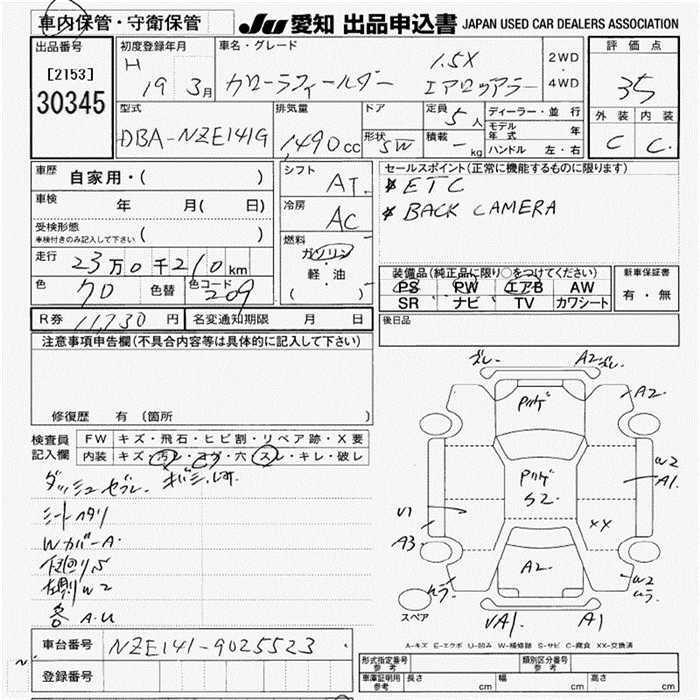 車内保管・守衛保管
JU 愛知 出品申込書 JAPAN USED CAR DEALERS ASSOCIATION
出品番号
[2153]
30345
初度登録年月
H
19 3月
車名・グレード
カローラフィールダー
1.5X
エアロツアラー
2WD
4WD
評価点
3.5
外装 内装
C C
型式
DBA-NZE141G
排気量
1490cc
ドア
形状 SW
定員 5人
積載 - kg
ディーラー・並行
モデル年式 年
ハンドル 左・右
車歴 自家用・( )
車検 年 月( 日)
受検形態
車検付きのみ記入して下さい ( )
走行 23万0千210km
色 クロ 色替 色コード 209
シフト AT
冷房 AC
燃料
ガソリン
軽・油
( )
セールスポイント(正常に機能するものに限ります)
* ETC
* BACK CAMERA
装備品(純正品に限り○をつけてください)
PS PW エアB AW
SR ナビ TV カワシート
新車保証書
有・無
R券 11,730 円 名変通知期限 月 日
後日品
注意事項申告欄(不具合内容等は具体的に記入して下さい)
修復歴 有 (箇所 )
検査員
記入欄
FW キズ・飛石・ヒビ割・リペア跡・X要
内装 キズ・汚レ・コゲ・穴・スレ・キレ・破レ
シートヘタリ
WカバーA
下廻りS
左側W2
各A.U
A2
A2
W2
A1
S2
U1
A3
XX
A2
W2
ムラ
ムラ
スペア
A1
A-キズ E-エクボ U-凹み W-補修跡 S-サビ C-腐食 XX-交換済
車台番号 NZE141-9025523
登録番号
形式指定番号
参考
類別区分番号
参考
車庫証明用
参考
長さ cm 幅 cm 高さ cm